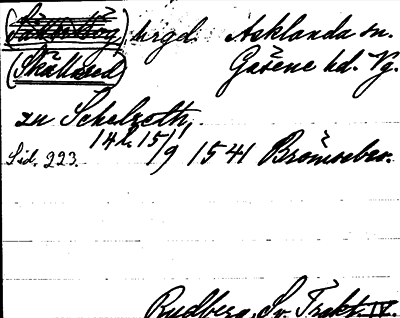 hrgd. Asklanda sn.
(Skållared) Gäsene hd. Vg.
zu Schelroth,
14 15/
Sid. 223. /9 1541 Brömsebro.
Rydberg, Sv. Trakt. IV.